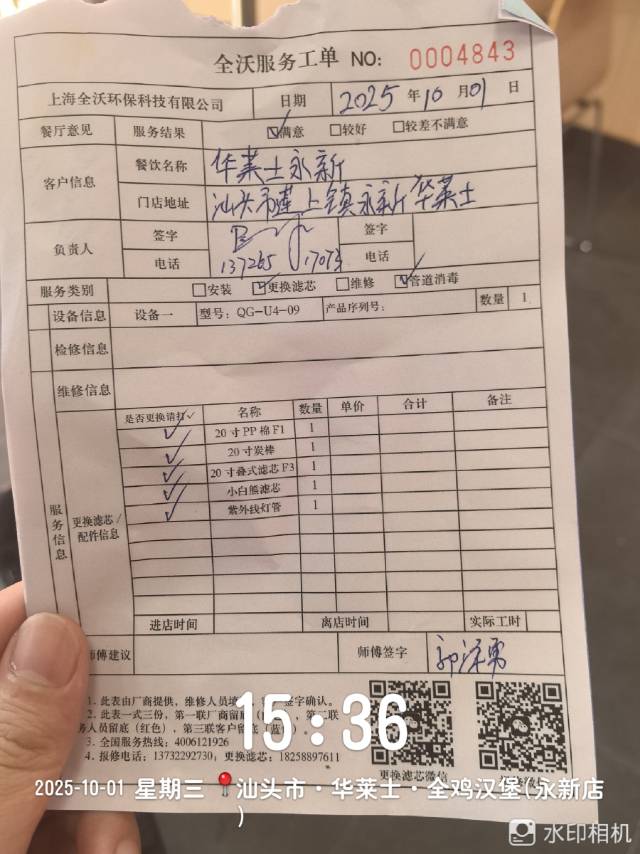 全沃服务工单 NO: 0004843
上海全沃环保科技有限公司 日期 2025 年 10 月 01 日
餐厅意见 服务结果 ☑满意 □较好 □较差不满意
客户信息 餐饮名称 华莱士永新
门店地址 汕头市莲上镇永新华莱士
负责人 签字 签字
电话 电话
服务类别 □安装 ☑更换滤芯 □维修 ☑管道消毒
设备信息 设备一 型号: QG-U4-09 产品序列号: 数量 1
检修信息
维修信息
服务信息
更换滤芯/配件信息
是否更换请打✓ 名称 数量 单价 合计 备注
✓ 20寸PP棉F1 1
✓ 20寸炭棒 1
✓ 20寸叠式滤芯F3 1
✓ 小白熊滤芯 1
✓ 紫外线灯管 1
进店时间 离店时间 实际工时
师傅建议 师傅签字
1. 此表由厂商提供，维修人员 签字确认。
2. 此表一式三份，第一联厂商留底 第二联
务人员留底（红色），第三联客户留底（蓝
3. 全国服务热线：4006121926
4. 报修电话：13732292730；更换滤芯：18258897611
更换滤芯微信
15:36
2025-10-01 星期三 汕头市·华莱士·全鸡汉堡(永新店
)
水印相机